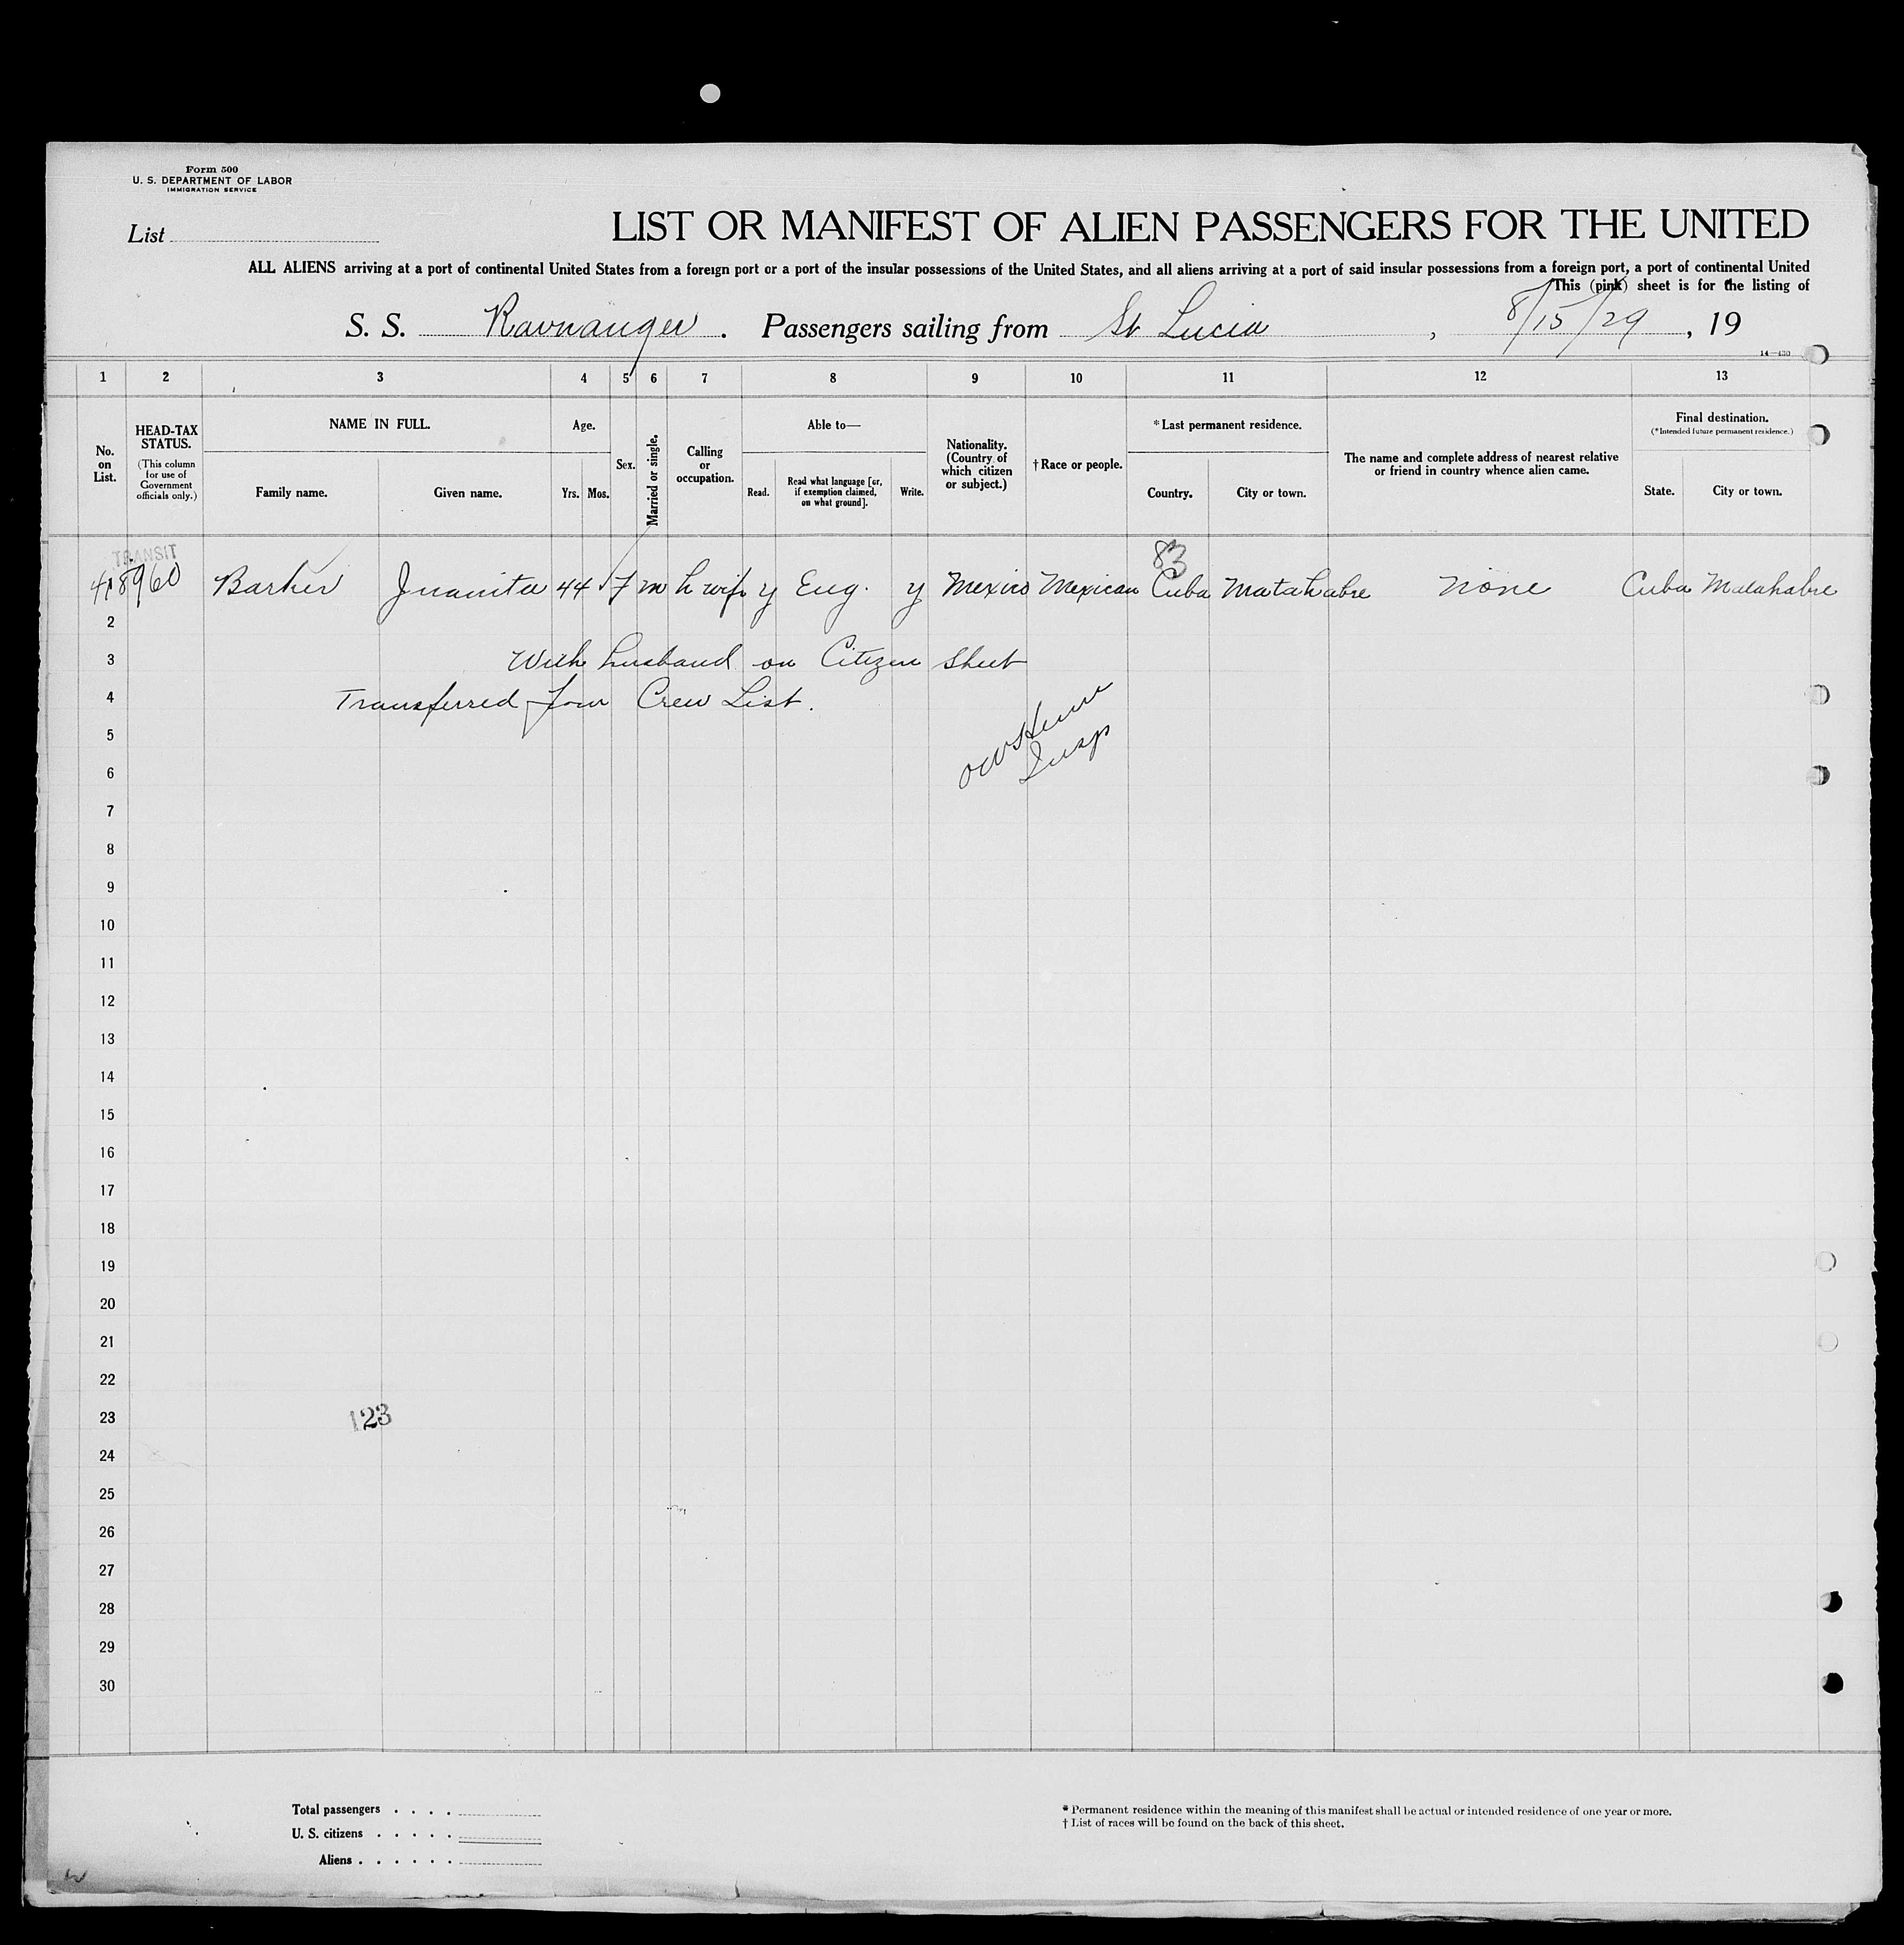 Form 500
U. S. DEPARTMENT OF LABOR
IMMIGRATION SERVICE
List
LIST OR MANIFEST OF ALIEN PASSENGERS FOR THE UNITED
ALL ALIENS arriving at a port of continental United States from a foreign port or a port of the insular possessions of the United States, and all aliens arriving at a port of said insular possessions from a foreign port, a port of continental United
This (pink) sheet is for the listing of
S. S. Ravnanger . Passengers sailing from St Lucia , 8/15/29 , 19
14—430
1 2 3 4 5 6 7 8 9 10 11 12 13
No. on List.
HEAD-TAX STATUS.
(This column for use of Government officials only.)
NAME IN FULL.
Family name. Given name.
Age.
Yrs. Mos.
Sex.
Married or single.
Calling or occupation.
Able to—
Read. Read what language [or, if exemption claimed, on what ground]. Write.
Nationality. (Country of which citizen or subject.)
† Race or people.
* Last permanent residence.
Country. City or town.
The name and complete address of nearest relative or friend in country whence alien came.
Final destination.
(* Intended future permanent residence.)
State. City or town.
TRANSIT
83
1 Barker Juanita 44 F m h wife y Eng. y Mexico Mexican Cuba Matahabre none Cuba Matahabre
2
3 With husband on Citizen Sheet
4 Transferred from Crew List.
5
6 Insp
7
8
9
10
11
12
13
14
15
16
17
18
19
20
21
22
23
123
24
25
26
27
28
29
30
Total passengers . . . .
U. S. citizens . . . . .
Aliens . . . . . .
* Permanent residence within the meaning of this manifest shall be actual or intended residence of one year or more.
† List of races will be found on the back of this sheet.